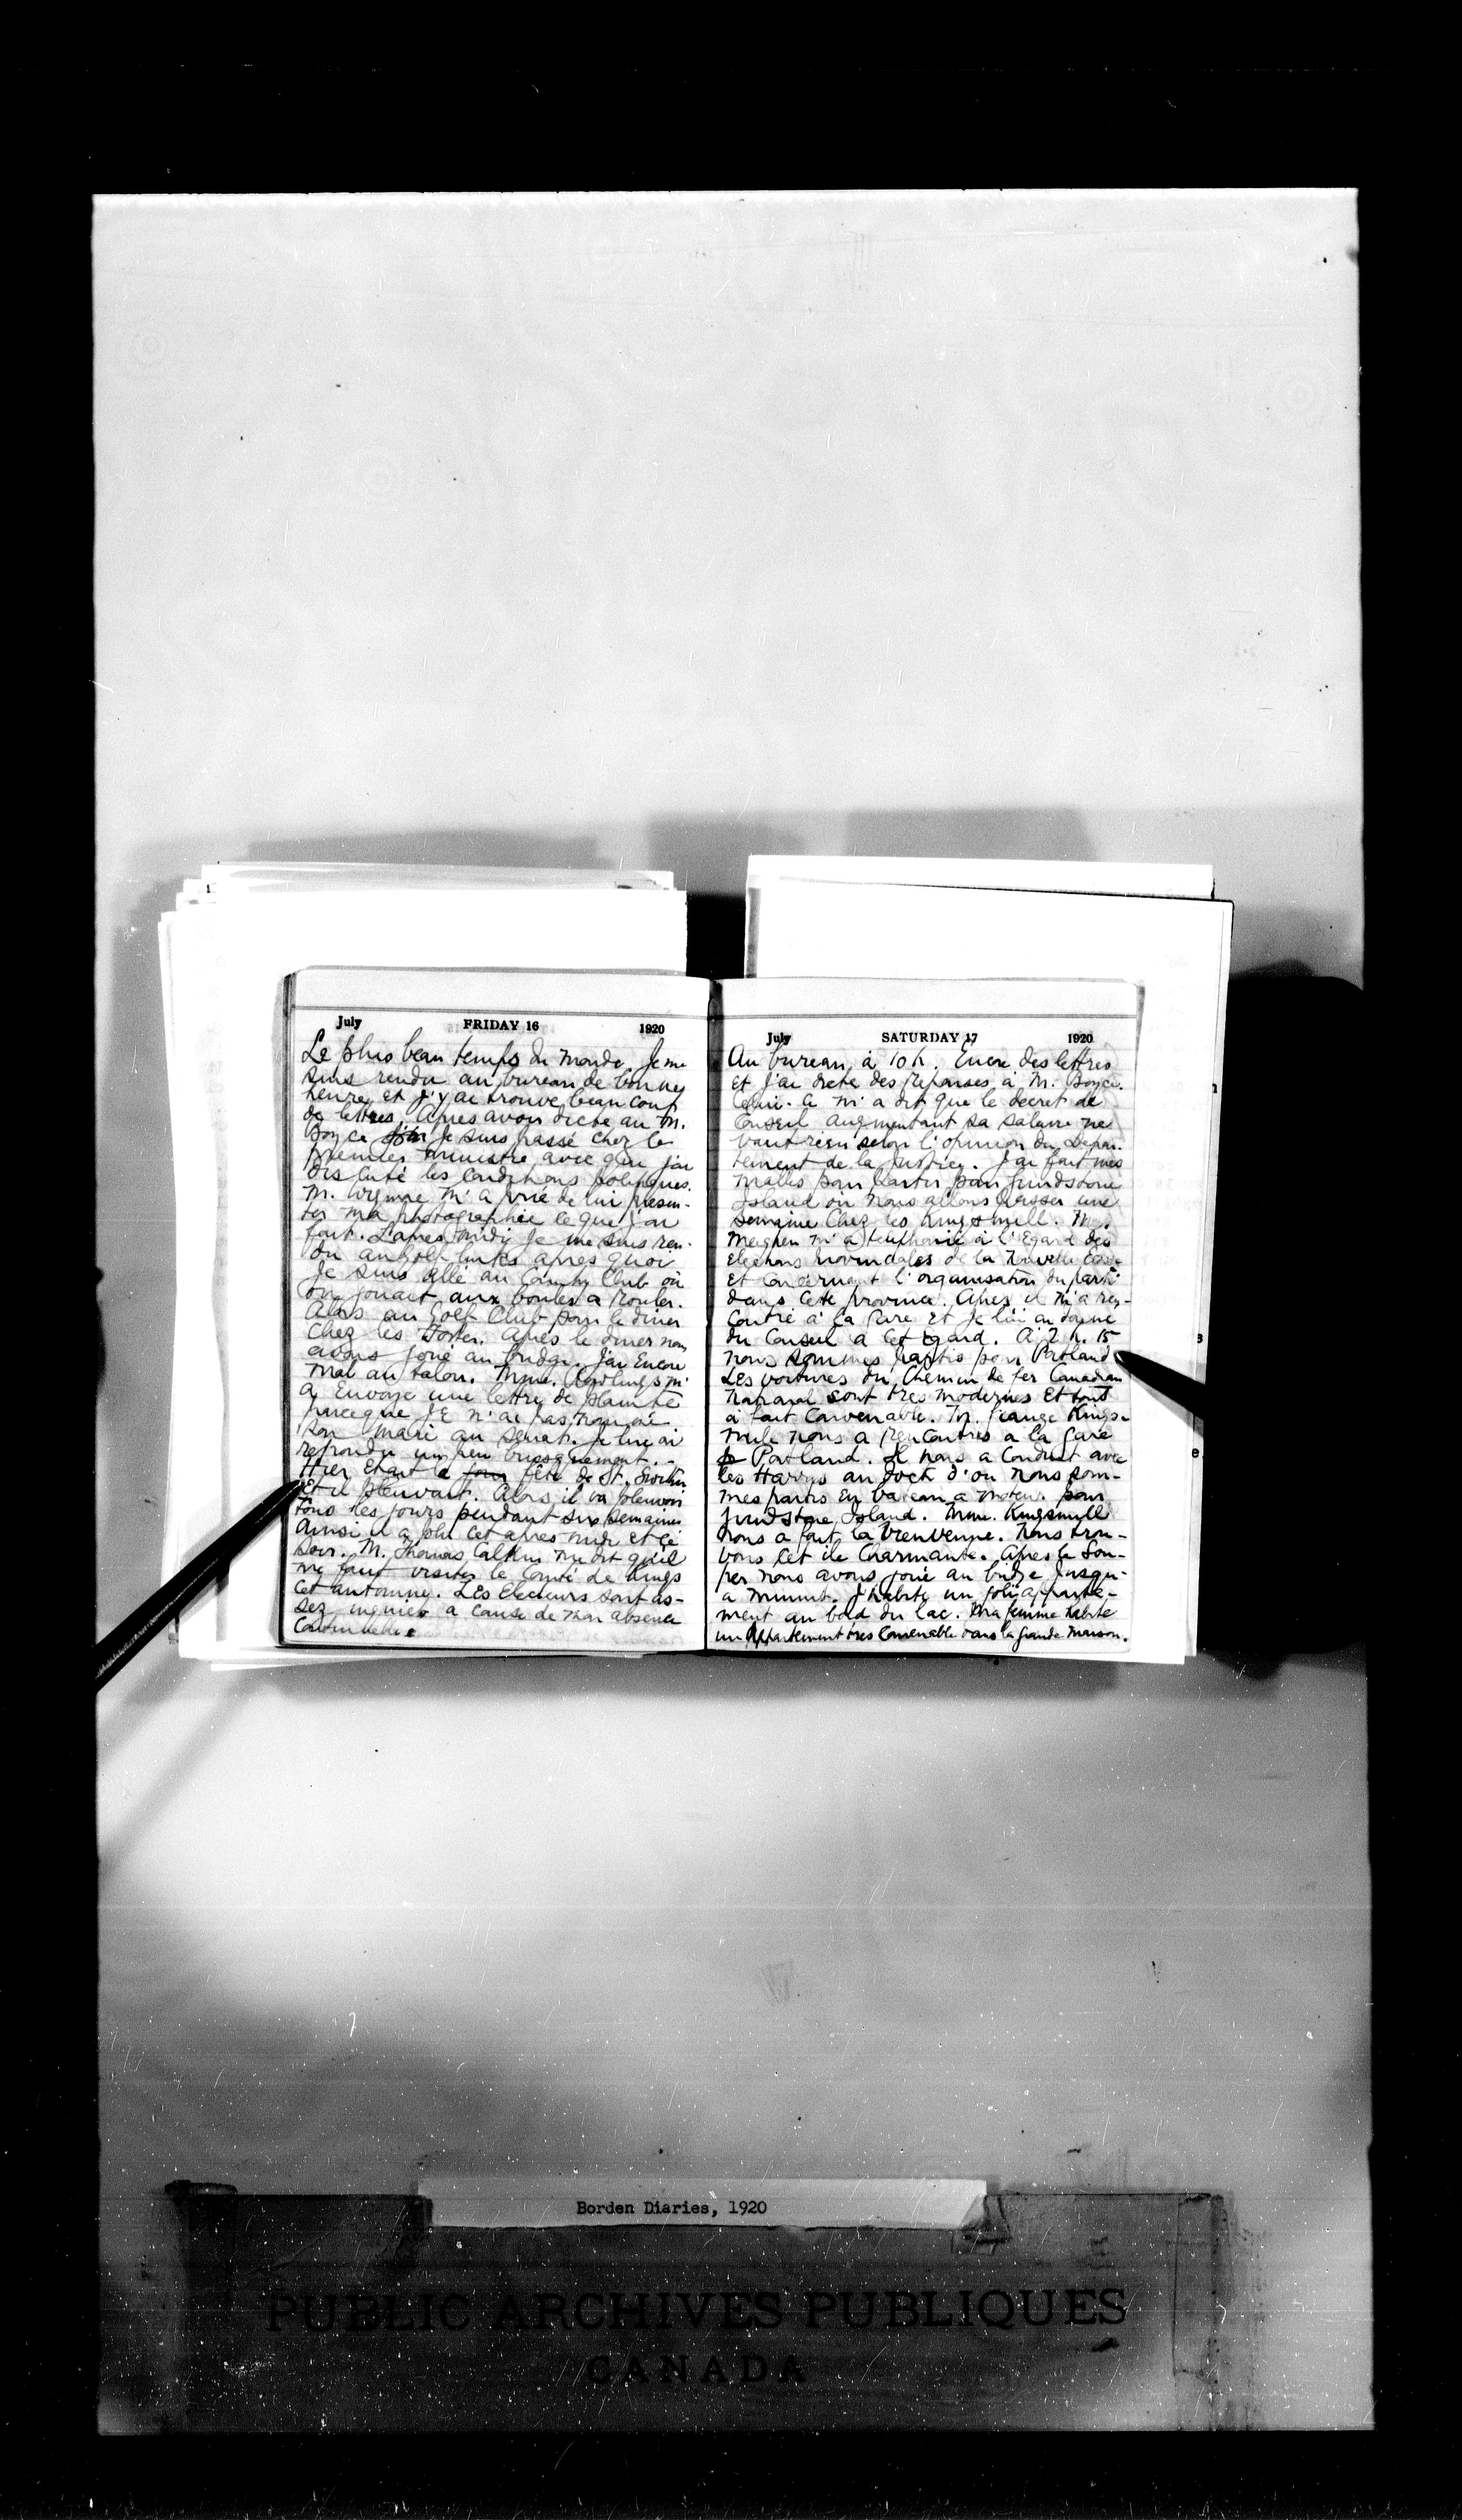 July FRIDAY 16 1920
Le plus beau temps du monde. Je me
suis rendu au bureau de bonne
heure et j'y ai trouvé beaucoup
de lettres. Apres avoir dicté au M.
Boyce je suis passé chez le
premier ministre avec qui j'ai
discuté les conditions politiques.
M. m'a prié de lui presen-
ter ma photographie ce que j'ai
fait. L'apres midi je me suis ren-
du au golf links apres quoi
Je suis allé au Country Club où
on jouait aux boules a rouler.
Alors au Golf Club pour le diner
chez les Foster. Après le diner nous
avons joué au bridge. J'ai encore
mal au talon. Mme. Rawlings m'
a envoyé une lettre de plainte
parceque je n'ai pas nommé
son mari au Senat. Je lui ai
repondu un peu brusquement. -
Hier etait la fête de St. Swithin
et il pleuvait. Alors il va pleuvoir
tous les jours pendant six semaines
Ainsi il a plu cet apres midi et ce
soir. M. Thomas Calkin me dit qu'il
me faut visiter le Comté de Kings
cet automne. Les electeurs sont as-
sez a cause de mon absence
continuelle.
July SATURDAY 17 1920
Au bureau à 10 h. Encore des lettres
et j'ai dicté des reponses à M. Boyce.
Celui-ci m'a dit que le decret de
Conseil augmentant sa salaire ne
vaut rien selon l'opinion du Depar-
tement de la Justice. J'ai fait mes
malles pour partir pour Grindstone
Island où nous allons passer une
semaine chez les Kingsmill. M.
Meighen m'a telephoné à l'egard des
elections provinciales de la Nouvelle Ecosse
et concernant l'organisation du parti
dans cette province. Apres il m'a ren-
contré à la Gare et je lui ai donné
du conseil a cet egard. A 2 h. 15
nous sommes partis pour Portland
Les voitures du Chemin de fer Canadian
National sont tres modernes et tout
à fait convenable. M. George Kings-
mill nous a rencontrés a la gare
Portland. Il nous a conduit avec
les Harrys au dock d'où nous som-
mes partis en bateau a moteur pour
Grindstone Island. Mme. Kingsmill
nous a fait la bienvenue. Nous trou-
vons cet ile charmante. Apres le sou-
per nous avons joué au bridge jusqu'
a minuit. J'habite un joli apparte-
ment au bord du lac. Ma femme habite
un appartement tres convenable dans la grande maison.
Borden Diaries, 1920
PUBLIC ARCHIVES PUBLIQUES
CANADA